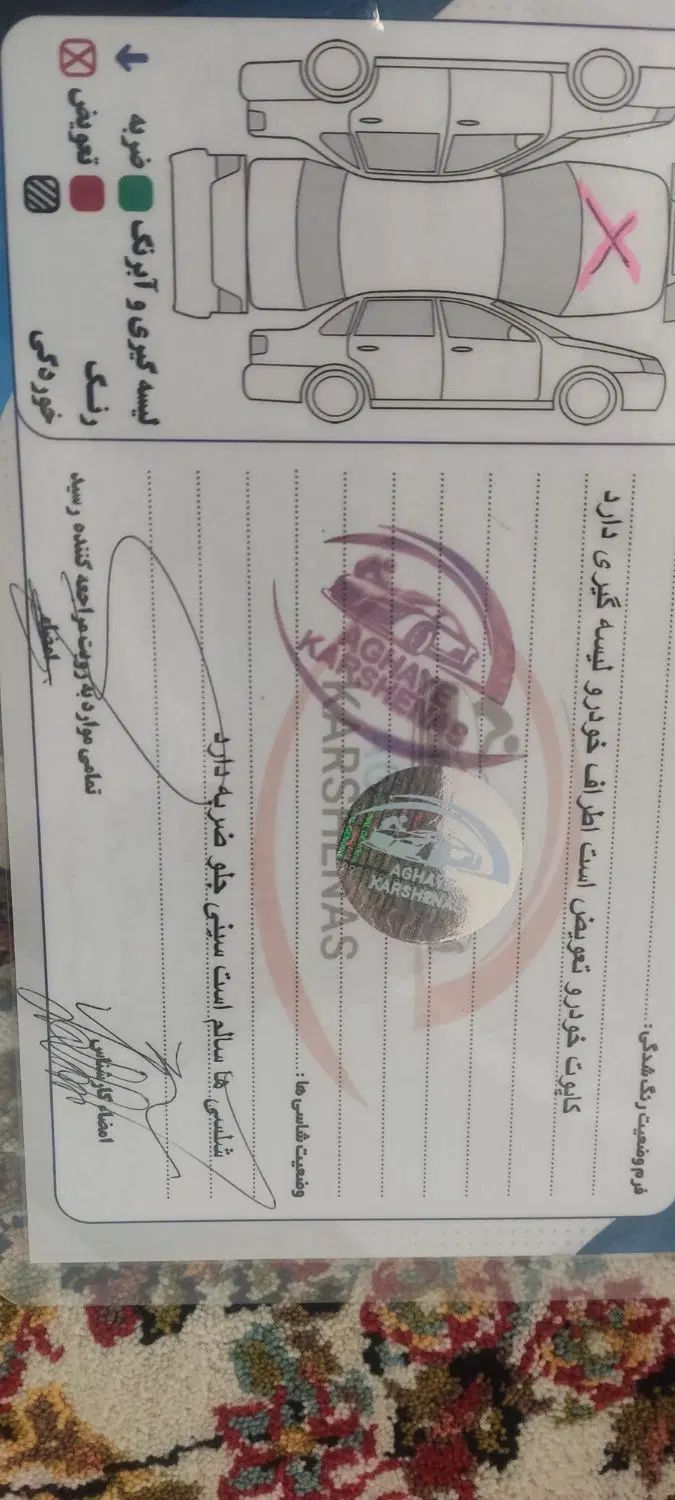 فرم وضعیت رنگ شدگی:
کاپوت خودرو تعویض است اطراف خودرو لیسه گیری دارد
وضعیت شاسی ها:
شاسی ها سالم است سینی جلو ضربه دارد
امضاء کارشناس
تمامی موارد به رویت مراجعه کننده رسید
امضاء
ضربه
لیسه گیری و آبرنگ
تعویض
رنگ
خوردگی
AGHAYE
KARSHENAS
KARSHENAS
AGHAYE
KARSHENAS